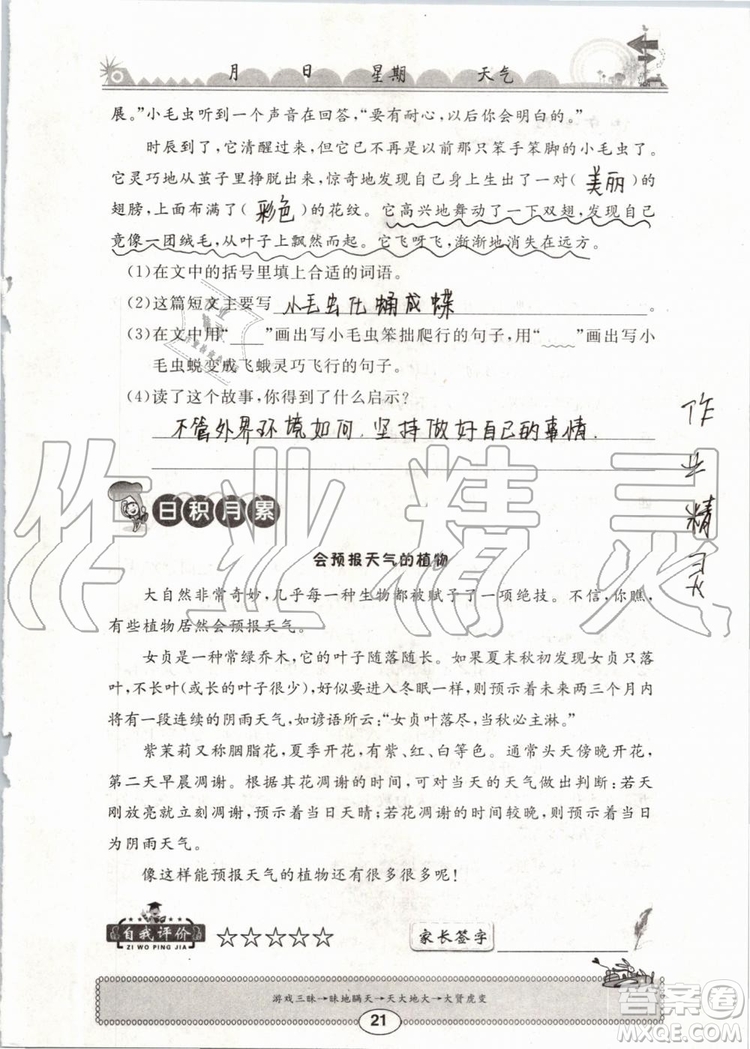 月 日 星期 天气
展。”小毛虫听到一个声音在回答,“要有耐心,以后会明白的。”
时辰到了,它清醒过来,但它已不再是以前那只笨手笨脚的小毛虫了。
它灵巧地从茧子里挣脱出来,惊奇地发现自己身上生出了一对( 美丽 )的
翅膀,上面布满了( 彩色 )的花纹。它高兴地舞动了一下双翅,发现自己
竟像一团绒毛,从叶子上飘然而起。它飞呀飞,渐渐地消失在远方。
(1)在文中的括号里填上合适的词语。
(2)这篇短文主要写 小毛虫化蛹成蝶 。
(3)在文中用“____”画出写小毛虫笨拙爬行的句子,用“﹏﹏”画出写小
毛虫蜕变成飞蛾灵巧飞行的句子。
(4)读了这个故事,你得到了什么启示?
不管外界环境如何,坚持做好自己的事情.
作业精灵
作业精灵
日积月累
会预报天气的植物
大自然非常奇妙,几乎每一种生物都被赋予了一项绝技。不信,你瞧,
有些植物居然会预报天气。
女贞是一种常绿乔木,它的叶子随落随长。如果夏末秋初发现女贞只落
叶,不长叶(或长的叶子很少),好似要进行冬眠一样,则预示着未来两三个月内
将有一段连续的阴雨天气,如谚语所云:“女贞叶落尽,当秋必主淋。”
紫茉莉又称胭脂花,夏季开花,有紫、红、白等色。通常头天傍晚开花,
第二天早晨凋谢。根据其凋谢的时间,可对当天的天气做出判断:若天
刚放亮就立刻凋谢,预示着当日天晴;若花凋谢的时间较晚,则预示着当日
为阴雨天气。
像这样能预报天气的植物还有很多很多呢!
自我评价
ZI WO PING JIA
☆☆☆☆☆
家长签字
游戏三昧→昧地瞒天→天大地大→大贤虎变
21
答案圈
MXQE.COM